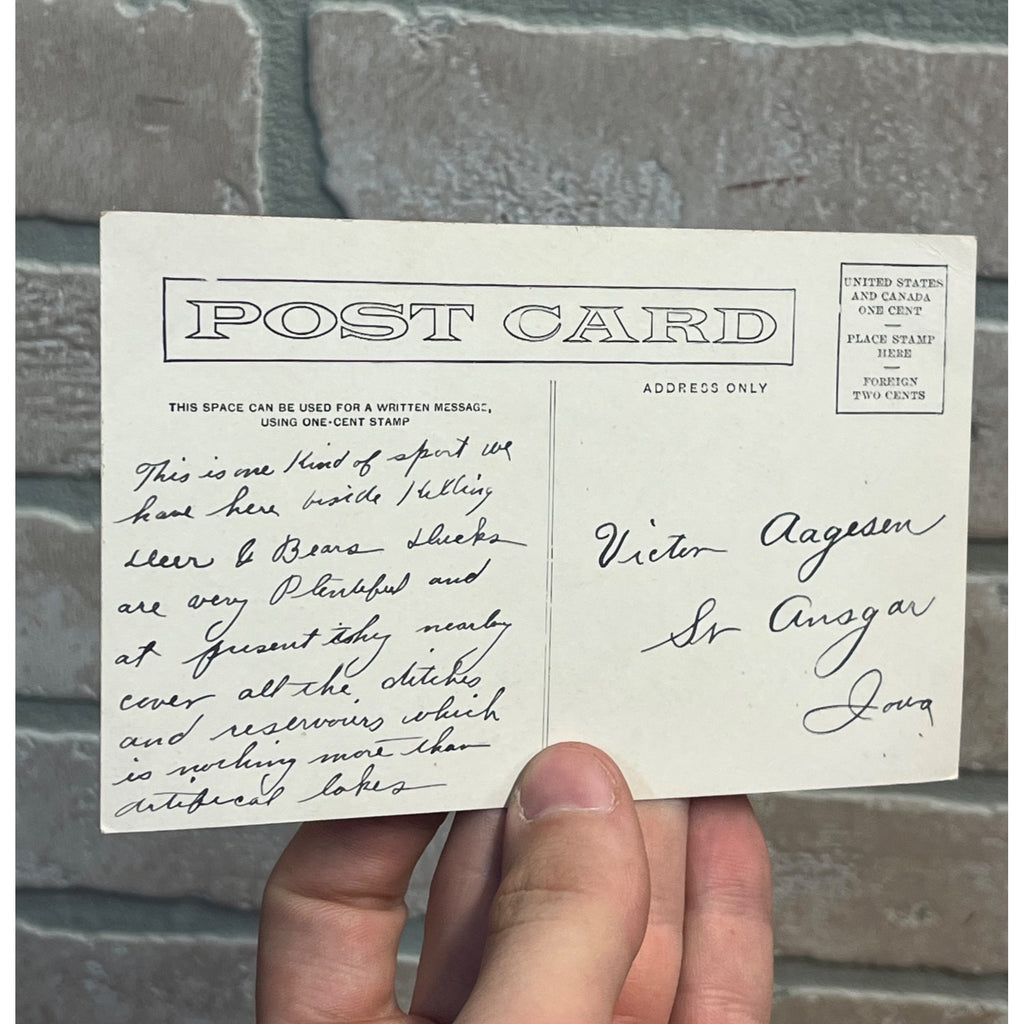 POST CARD
UNITED STATES
AND CANADA
ONE CENT
PLACE STAMP
HERE
FOREIGN
TWO CENTS
THIS SPACE CAN BE USED FOR A WRITTEN MESSAGE,
USING ONE-CENT STAMP
This is one Kind of sport we
have here biside Killing
deer & Bears ducks
are very Plentiful and
at present they nearly
cover all the ditches
and reservours which
is nothing more than
artifical lakes
ADDRESS ONLY
Victor Aagesen
St Ansgar
Iowa